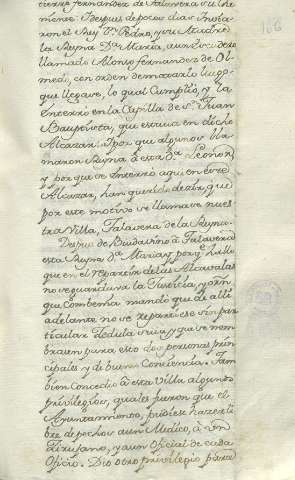 tierro fernandez de Talavera su the
niente. Y despues de pocos dias invia
ron el Rey Dn. Pedro, y su Madre
la Reyna Da. Maria, aun
llamado Alonso fernandez de Ol
medo, con orden de matarla luego
que llegase, lo qual Cumplio, y la
enterro en la Capilla de Sn. Juan
Bauptista, que estava en dicho
Alcazar. Y por que algunos lla
maron Reyna a esta Da. Leonor,
y por que se enterro aqui en este
Alcazar, han querido decir, que
por este motivo se llamase nues
tra Villa, Talavera de la Reyna.
Despues de Biuda vino a Talavera
esta Reyna Da. Maria, y porqe. hallo
que en el repartir de las Alcavalas
no se guardava la Justicia, y orn.
que Combenia mando que de alli
adelante no se repartiese sin par
ticular Cedula suya y que se nom
brasen para esto dos personas prin
cipales y de buena Conciencia. Tam
bien Concedio a esta Villa algunos
privilegios, quales fueron que el
Ayuntamiento, pudiese hazer li
bre de pechos aun Medico, a un
Zirujano, y aun Oficial de cada
Oficio. Dio otro privilegio para